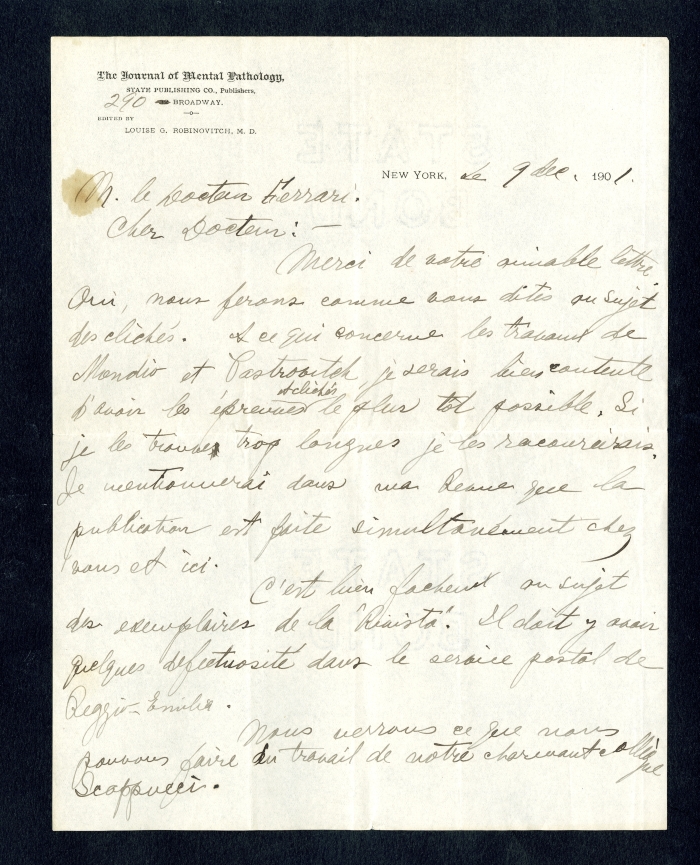 The Journal of Mental Pathology,
STATE PUBLISHING CO., Publishers,
290 BROADWAY.
EDITED BY
LOUISE G. ROBINOVITCH, M. D.
NEW YORK, le 9 dec. 1901.
M. le Docteur Ferrari.
Cher Docteur: —
Merci de votre aimable lettre.
Oui, nous ferons comme vous dites au sujet
des clichés. A ce qui concerne les travaux de
Mondio et Pastrovitch, je serais bien contente
et clichés
d'avoir les épreuves le plus tôt possible. Si
je les trouves trop longues je les racourcirais.
Je mentionnerai dans ma Revue que la
publication est faite simultanément chez
vous et ici.
C'est bien facheux au sujet
des exemplaires de la "Rivista". Il doit y avoir
quelques défectuosité dans le service postal de
Reggio-Emilia.
Nous verrons ce que nous
pouvons faire du travail de notre charmant collègue
Scappucci.